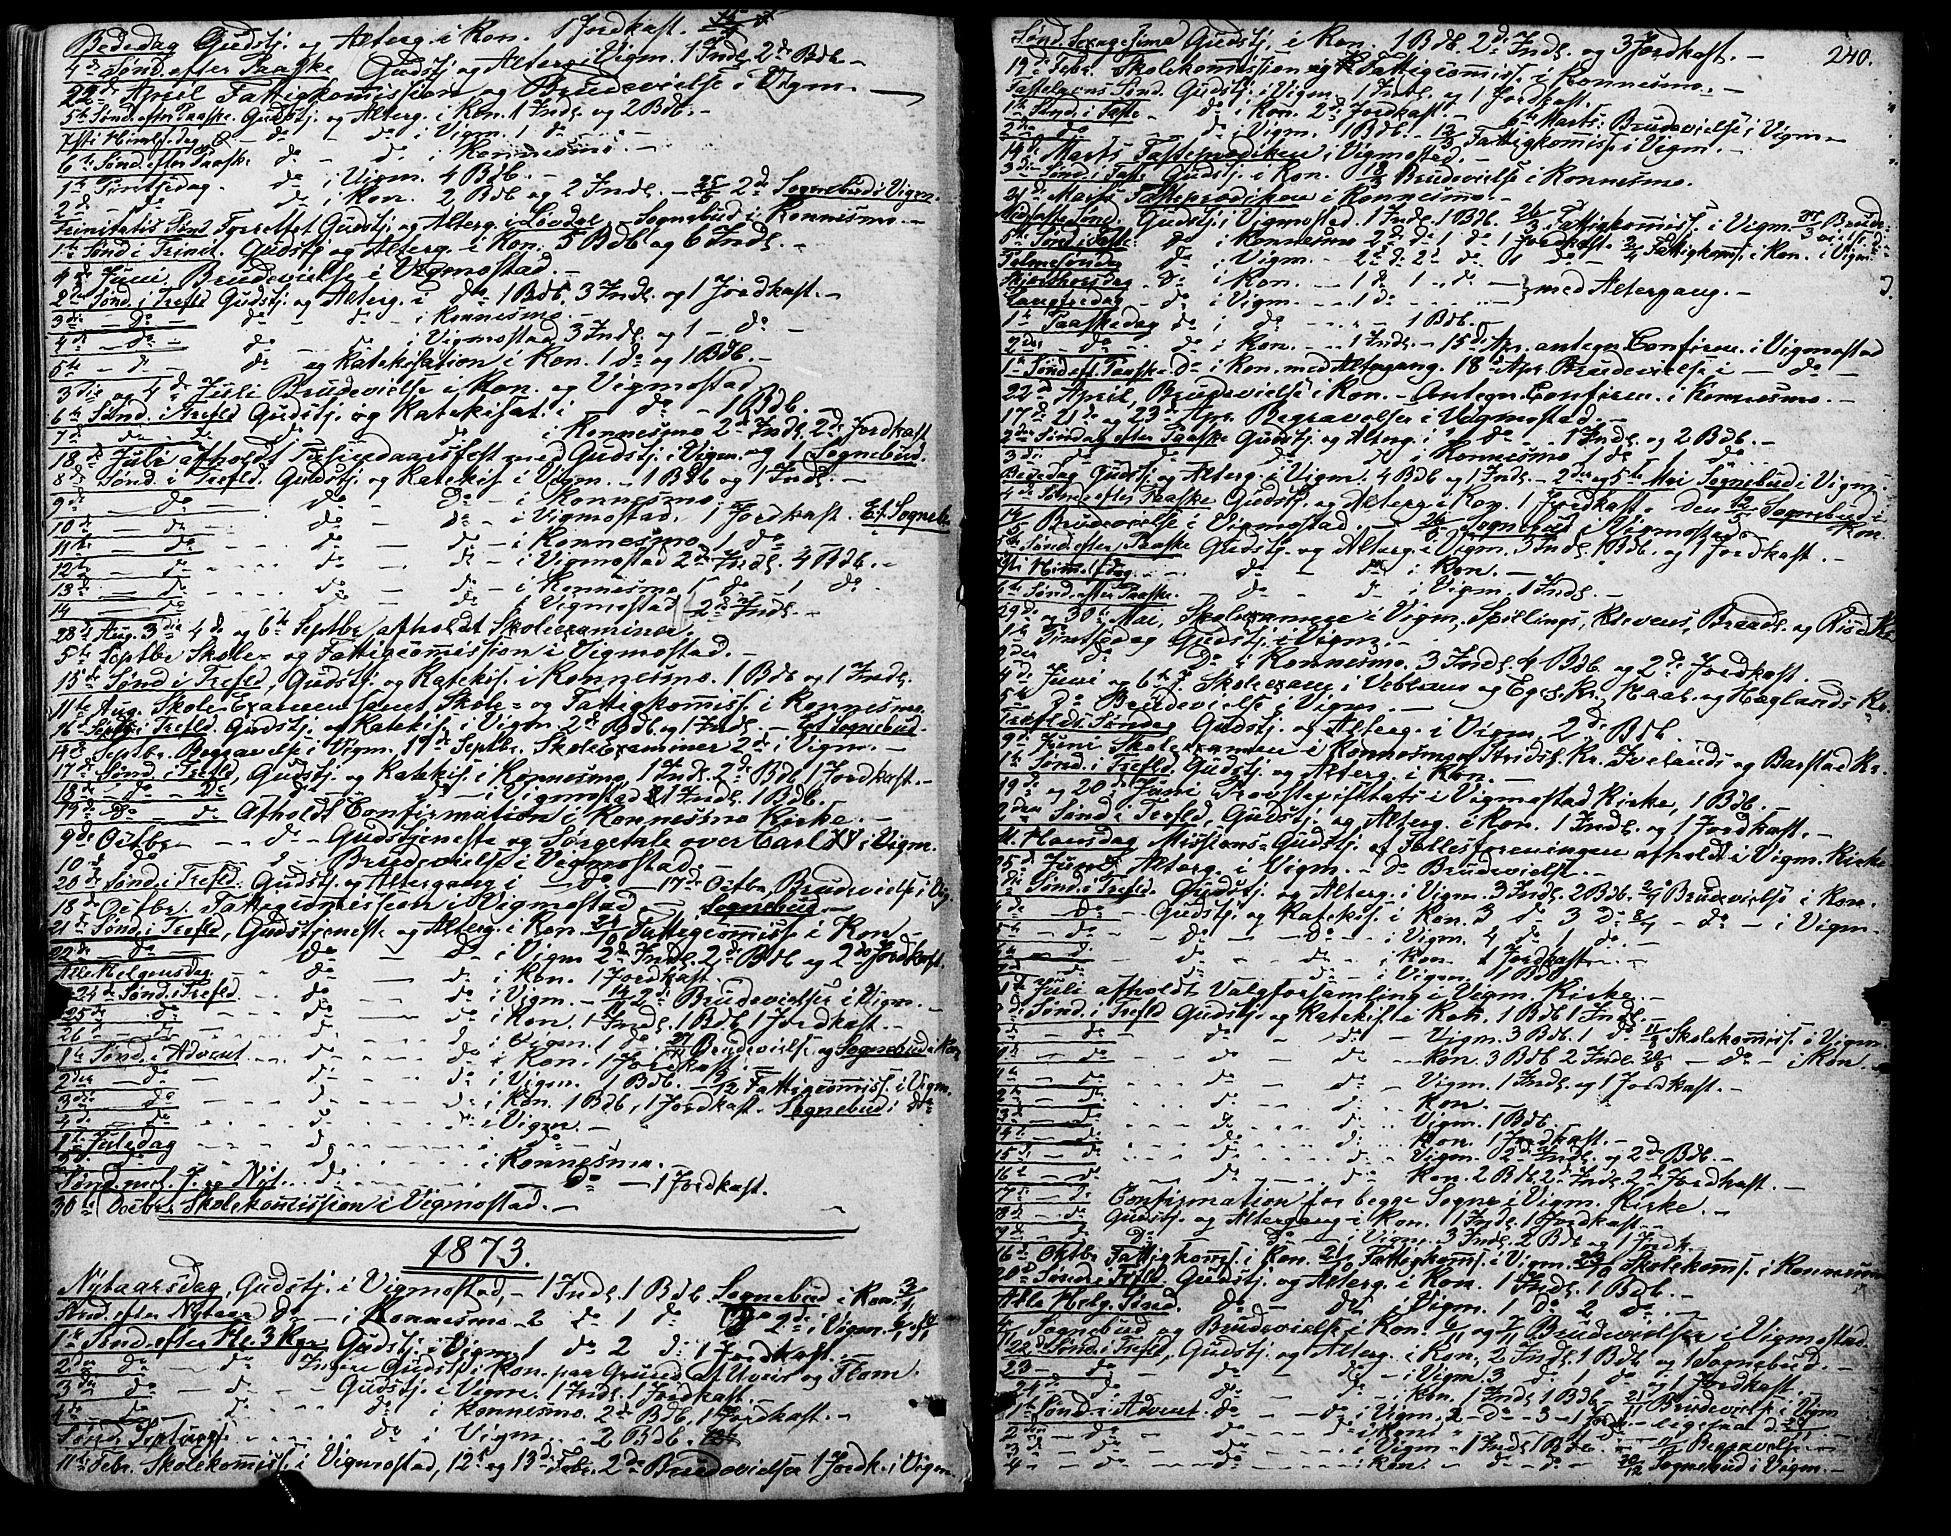 Bededag Gudstj. og Alterg. i Kon. 1 Jordkast.
4de Sønd. efter Paaske Gudstj. og Alterg. i Vigm. 1 Indl. 2de Bdb. –
22de April Fattigkomission og Brudevielse i Vigm. –
5te Sønd. efter Paaske. Gudstj. og Alterg. i Kon. 1 Indl. og 2 Bdb. –
Kristi Himlf. dag do – do i Vigm. 1 do –
6te Sønd. efter Paaske. do – do i Konnesmo. –
1te Pintsedag. do i Vigm. 4 Bdb. –
2de – do – do i Kon. 2 Bdb og 2 Indl. – 25/5 2de Sognebud i Vigm.
Trinitatis Sønd Forrettet Gudstj. og Alterg. i Lovdal – Sognebud i Konnesmo. –
1te Sønd. i Trinit. Gudstj. og Alterg. i Kon. 5 Bdb og 6 Indl. –
4de Juni Brudevielse i Vigmostad. –
2den Sønd. i Trefld Gudstj. og Alterg. i do 1 Bdb. 3 Indl. og 1 Jordkast. –
3die – do – do – do – i Konnesmo. –
4de – do – do – do i Vigmostad 3 Indl. og 1 – do –
5te – do – do og Katekisation i Kon. 1 do og 1 Bdb. –
3die og 4de Juli Brudevielse i Kon. og Vigmostad
6te Sønd. i Trefld Gudstj. og Katekisat. i do – 1 Bdb. –
7de do – do do i Konnesmo 2de Indl. 2de Jordkast
18de Juli afholdt Tusindaarsfest med Gudstj. i Vigm. og 1 Sognebud.
8de Sønd. i Trefld. Gudstj. og Katekis. i Vigm. – 1 Bdb og 1 Indl. –
9de – do – do – do – i Konnesmo. –
10de – do – do – do – i Vigmostad. 1 Jordkast. Et Sogneb.
11te – do – do – do – i Konnesmo 1 do
12te – do – do – do – i Vigmostad 2de Indl. 4 Bdb. –
13de – do – do – do – i Konnesmo 1 do 1 do –
14 – do – do – do – i Vigmostad 2de Indl. –
28de Aug. 3die 4de og 6te Septbr afholdt Skoleexaminer.
5te Septbr Skole- og Fattigcomission i Vigmostad. –
15de Sønd i Trefld, Gudstj. og Katekis. i Konnesmo. 1 Bdb og 1 Indl.
11te Aug. Skole-Examen samt Skole- og Fattigkomiss. i Konnesmo.
16de Sønd. i Trefld. Gudstj. og Katekis. i Vigm. 2de Bdb. og 1 Indl. – Et Sognebud.
14de Septbr. Begravelse i Vigm. 19de Septbr. Skoleexaminer 2de i Vigm. –
17de Sønd. i Trefld, Gudstj. og Katekis. i Konnesmo, 1 Indl. 2de Bdb 1 Jordkast. –
18de – do – do – do – i Vigmostad 1 Indl. 1 Bdb.
19de do – do Afholdt Confirmation i Konnesmo Kirke. –
9de Octbr – do – Gudstjeneste og Sørgetale over Carl XV i Vigm.
10de do – Brudevielse i Vigmostad. –
20de Sønd. i Trefld. Gudstj. og Altergang i – do – 17de Octbr. Brudevielse i Vig.
18de Octbr. Fattigcomission i Vigmostad – Sognebud –
21de Sønd. i Trefld, Gudstjeneste og Alterg. i Kon. 24/10 Fattigcomiss. i Kon. –
22de – do – do – do – i Vigm 2de Indl. 2de Bdb og 2de Jordkast.
Alle Helgensdag – do – do – i Kon. 1 Jordkast. –
24de Sønd. i Trefld – do – do – i Vigm. – 14/11 2de Brudevielser i Vigm. –
25de – do – do – do – i Kon. 1 Indl. 1 Bdb 1 Jordkast. –
26te – do – do – do – i Vigm. 1 do 27/11 Brudevielse og Sognebud i Kon
1te Sønd. i Advent – do – do – i Kon. 1 Jordkast. –
2den – do – do – do – i Vigm. 1 Bdb. – Fattigcomiss. i Vigm.
3die – do – do – do – i Kon. 1 Bdb, 1 Jordkast. Sognebud i do
4de – do – do – do – i Vigm. –
1te Juledag – do – do –
2de – do – do – i Konnesmo. –
Sønd. mel. J. og Nyt. – do – do – 1 Jordkast.
30te Decbr. Skolekomission i Vigmostad. –
1873.
Nytaarsdag, Gudstj. i Vigmostad, – 1 Indl. 1 Bdb. Sognebud i Kon. 3/1
Sønd. efter Nytaar do – i Konnesmo 2 do 1 do
1te Sønd. efter He. 3 Kgr Gudstj. i Vigm. 1 do 2 do 1 Jordkast. –
2den do – do Ingen Gudstj. i Kon. paa Grund af Uveir og Flom.
3die do – do – Gudstj. i Vigm. 1 Indl. 1 Jordkast
4de – do – do – do i Konnesmo. 2de Bdb. 1 Jordkast. –
Sønd. Septuag. – do i Vigm. – 2 Bdb.
11te Febr. Skolekomiss. i Vigmostad, 12te og 13de Febr. 2de Brudevielser 1 Jordk. i Vigm.
240.
Sønd. Sexagesima Gudstj. i Kon. 1 Bdb. 2de Indl. og 3 Jordkast. –
19de Febr. Skolekomission og Fattigcomiss. i Konnesmo. –
Fastelavns Sønd. Gudstj. i Vigm. 1 Indl. og 1 Jordkast.
1te Sønd. i Faste – do i Kon. 2de Jordkast. – 6te Marts. Brudevielse i Vigm. –
2den do – do – Vigm. 1 Bdb. – 13/3 Fattigkomiss. i Vigm. –
14de Marts Fasteprædiken i Vigmostad. –
3die Sønd. i Faste Gudstj. i Kon. 18/3 Brudevielse i Konnesmo.
21de Marts Fasteprædiken i Konnesmo. –
Midfaste Sønd. Gudstj. i Vigmostad. 1 Indl. 1 Bdb. 26/3 Fattigkomiss. i Vigm. 27/3 Brude-
5te Sønd. i Faste do i Konnesmo 2de do 1 do 1 Jordkast. 2/4 Fattigkomiss. i Kon. i Vigm.
Palmesøndag do i Vigm. – 2de do 2de do 1 do –
Skjærthorsdag – do i Kon. – 1 do 1 do – med Altergang. –
Langfredag – do i Vigm. – 1 do –
1te Paaskedag do i do – 1 Bdb. –
2den – do – do i Kon. – 1 Indl. – 15de Apr. antegn. Confirm. i Vigmostad
1te Sønd. eft. Paaske. do i Kon. med Altergang. 18de Apr. Brudevielse i – do –
22de April, Brudevielse i Kon. – Antegn. Confirm. i Konnesmo. –
17de 21de og 23de Apr. Begravelse i Vigmostad. –
2den Søndag efter Paaske Gudstj. og Alterg. i do – 1 Indl. og 2 Bdb. –
3die do – do do i Konnesmo 1 do 1 do –
Bededag Gudstj. og Alterg. i Vigm. 4 Bdb og 1 Indl. – 2den og 5te Mai Sognebud i Vigm.
4de Sønd. efter Paaske Gudstj. og Alterg. i Kon. 1 Jordkast. Den 12/5 Sognebud i
14/5 Brudevielse i Vigmostad. – Sognebud i Vigmostad. Kon.
5te Sønd. efter Paaske Gudstj. og Alterg. i Vigm. 3 Indl. 1 Bdb. og 1 Jordkast. –
Kristi Himlf. dag – do – do i Kon. –
6te Sønd. efter Paaske. – do – do i Vigm. 1 Indl. –
29de og 30te Mai, Skoleexamene i Vigm. Spillings, Kleveus, Braads og Risø Kr.
1te Pintsedag Gudstj. i Vigm. –
2den do – do i Konnesmo. 3 Indl. 4 Bdb og 2de Jordkast. –
4de Juni og 6te do Skoleexam. i og Egs Kr. og Høglands Kr.
5te do Brudevielse i Vigm. –
Trefolds Søndag Gudstj. og Alterg. i Vigm. 2de Bdb.
9de Juni Skoleexamen i Konnesmo, Kr. Ivelands og Barstad Kr.
1te Sønd. i Trefld. Gudstj. og Alterg. i Kon. –
19de og 20de Juni Provstevisitats i Vigmostad Kirke, 1 Bdb. –
2den Sønd. i Trefld, Gudstj. og Alterg. i Kon. 1 Indl. og 1 Jordkast. –
St. Hansdag Missions-Gudstj. af Fællesforeningen afholdt i Vigm. Kirke
25de Juni Alterg. i Vigm. – do Brudevielse. –
3die Sønd. i Trefld. Gudstj. og Alterg. i Vigm. 3 Indl. 2 Bdb. 2/7 Brudevielse i Kon.
4de – do – Gudstj. og Katekis. i Kon. 3 do 3 do 8/7 – do – i Vigm.
5te – do – do – do – i Vigm. 4 do 1 do –
6te – do – do – do – i Kon. 1 Jordkast. –
7de – do – do – do – i Vigm. 1 Bdb. –
Juli afholdt Valgforsamling i Vigm. Kirke. –
8de Sønd. i Trefld Gudstj. og Katekis. i Kon. 1 Bdb 1 Indl. –
– do – do – do – Vigm. 3 Bdb. 1 do 11/8 Skolekomiss. i Vigm.
10 – do – do – do – Kon. 3 Bdb 2 Indl. 20/8 – do – i Kon.
11te – do – do – do – Vigm. 1 Indl. og 1 Jordkast. –
12te – do – do – do – Kon. –
13de – do – do – do – Vigm. 1 Bdb.
14de – do – do – do – Kon. 1 Jordkast. –
15de – do – do – do – Vigm. 2de Indl. og 2de Bdb. –
16te – do – do – do – Kon. 2 Bdb. 2de Indl. 2de Jordkast. –
17de – do Confirmation for begge Sogne i Vigm. Kirke. –
18de – do – Gudstj. og Altergang i Kon. 1 Indl. 1 Jordkast. –
19de – do – do – do – i Vigm. 3 Indl. 2 Bdb og 1 Jordk. –
16de Oktbr Fattigkomiss. i Kon. 21/10 Fattigkomiss. i Vigm. Skolekomiss. i Konnesmo
20de Sønd. i Trefld Gudstj. og Alterg. i Kon. 1 Indl. 1 Bdb. –
Alle Helg. Sønd. do – do i Vigm. 1 do 2 do –
Sognebud og Brudevielse i Kon. 6/11 og 7/11 Brudevielser i Vigmostad.
22de Sønd. i Trefld, Gudstj. og Alterg. i Kon. 2 Indl. 1 Bdb og 1 Sognebud. –
23 – do – do – do – i Vigm. 3 do 1 Jordkast. –
24de – do – do – do – i Kon. 1 Indl. 1 Bdb. 21/11 Brudevielse i Vigm
1te Sønd. i Advent. do – do i Vigm. 2 – do – 3 – 1 Jordk.
2den – do – do – do i Kon.
3die – do – do – do – i Vigm. – 1 Indl. 1 Bdb. Begravelse. –
4 – do – do – do – i Kon. – do – do – 20/12 Sognebud i Vigm. –